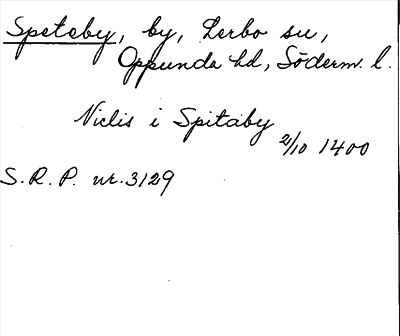 Speteby, by, Lerbo sn,
Oppunda hd, Söderm. l.
Niclis i Spitaby
2/10 1400
S.R.P. nr. 3129